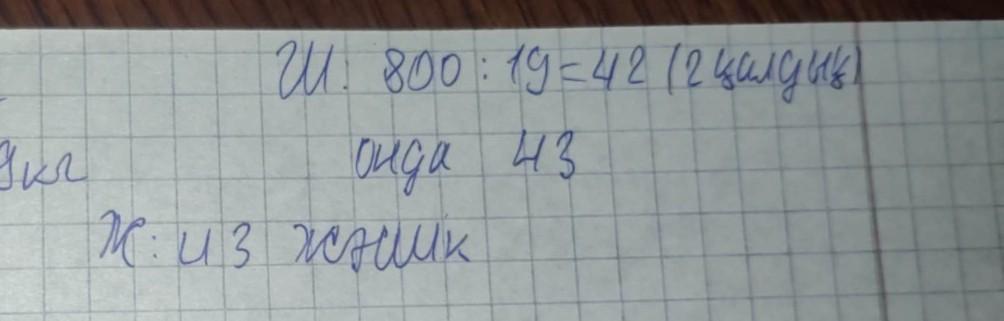 Ш: 800 : 19 = 42 (2 қалдық)
9кг
онда 43
Ж: 43 жәшик